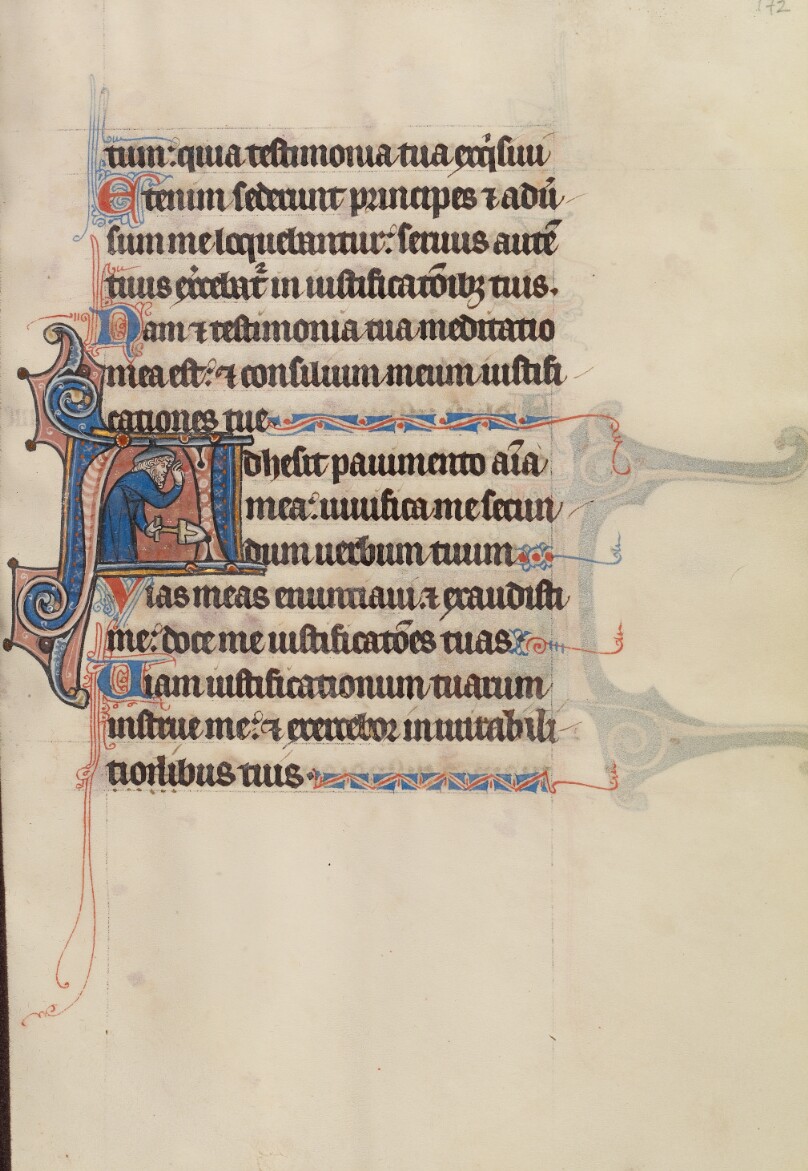 172
tum: quia testimonia tua exq̇siui
Etenim sederunt principes ⁊ adũ
sum me loquebantur: seruus autẽ
tuus ex̾cebat᷑ in iustificatõib⁊ tuis.
Nam ⁊ testimonia tua meditatio
mea est: ⁊ consilium meum iustifi
cationes tue.
Adhesit pauimento aĩa
mea: uiuifica me secun
dum uerbum tuum
Vias meas enuntiaui ⁊ exaudisti
me: doce me iustificatões tuas
Uiam iustificationum tuarum
instrue me: ⁊ exercebor in mirabili
tionibus tuis.